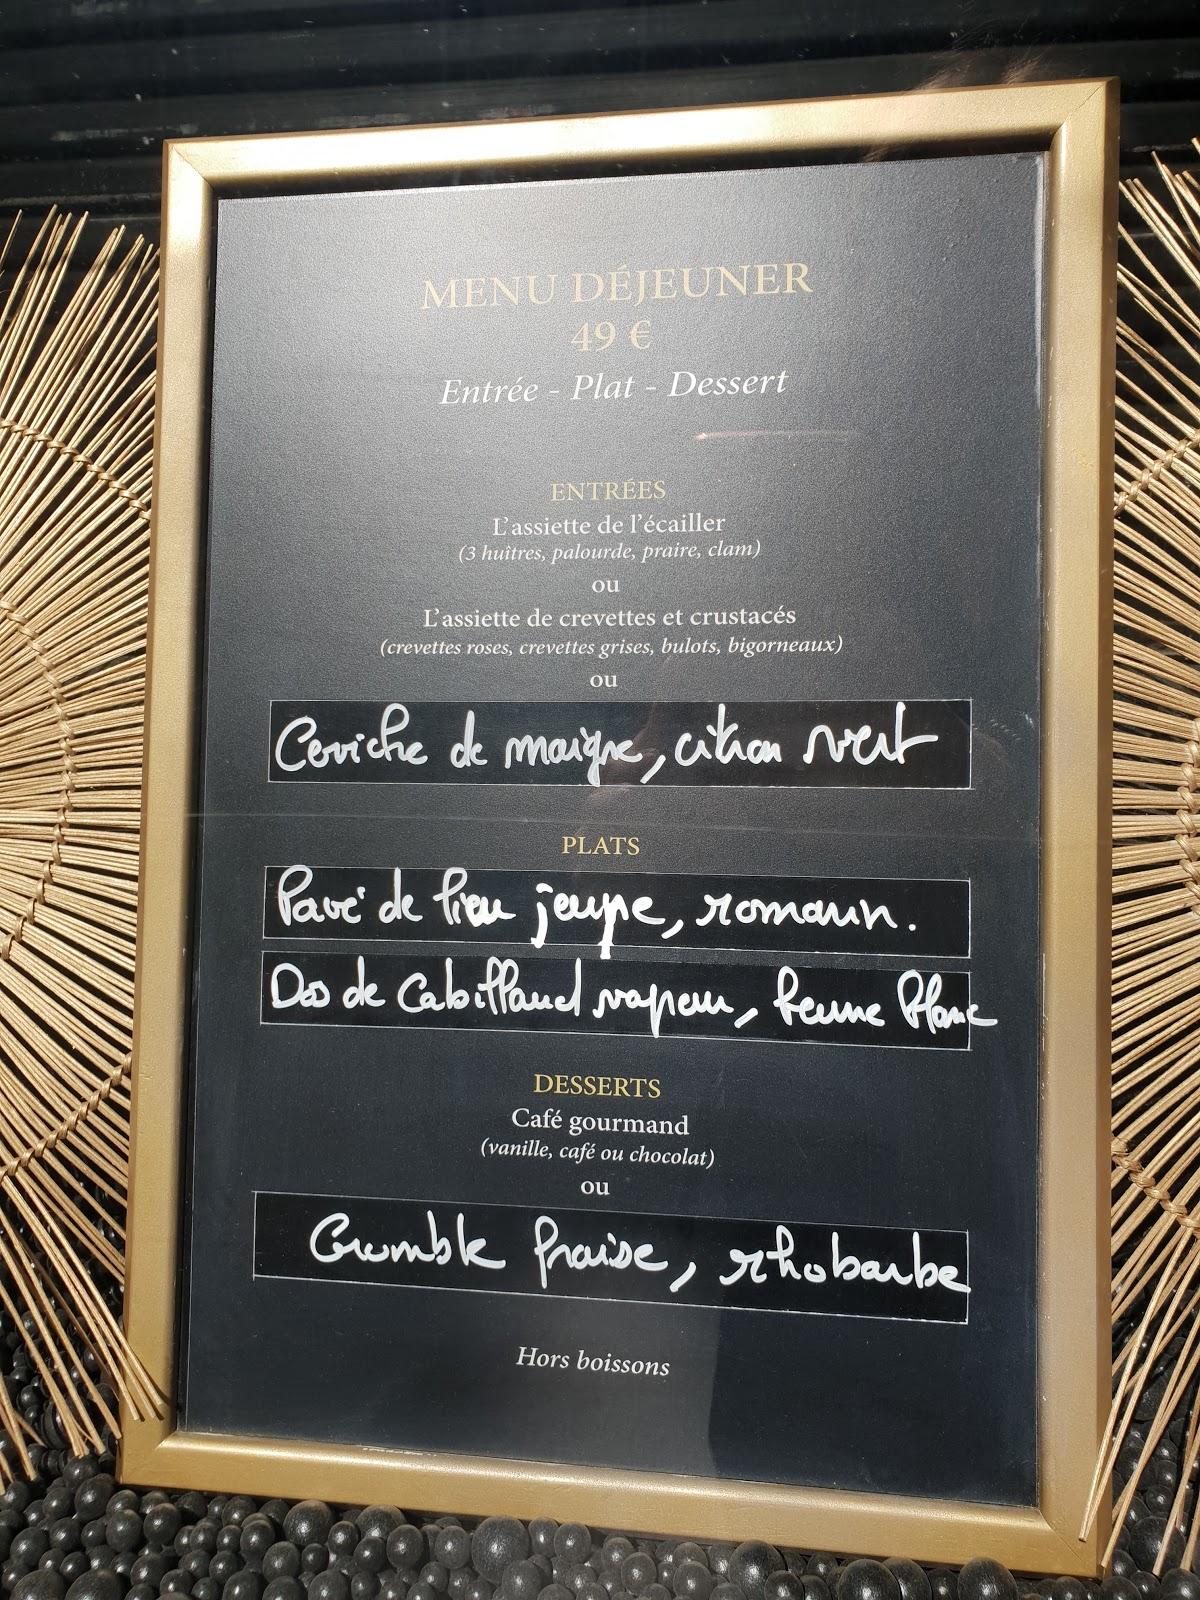 MENU DÉJEUNER
49 €
Entrée - Plat - Dessert
ENTRÉES
L'assiette de l'écailler
(3 huîtres, palourde, praire, clam)
ou
L'assiette de crevettes et crustacés
(crevettes roses, crevettes grises, bulots, bigorneaux)
ou
Ceviche de maigre, citron vert
PLATS
Pavé de lieu jeune, romarin.
Dos de Cabillaud vapeur, beurre blanc
DESSERTS
Café gourmand
(vanille, café ou chocolat)
ou
Crumble fraise, rhobarbe
Hors boissons